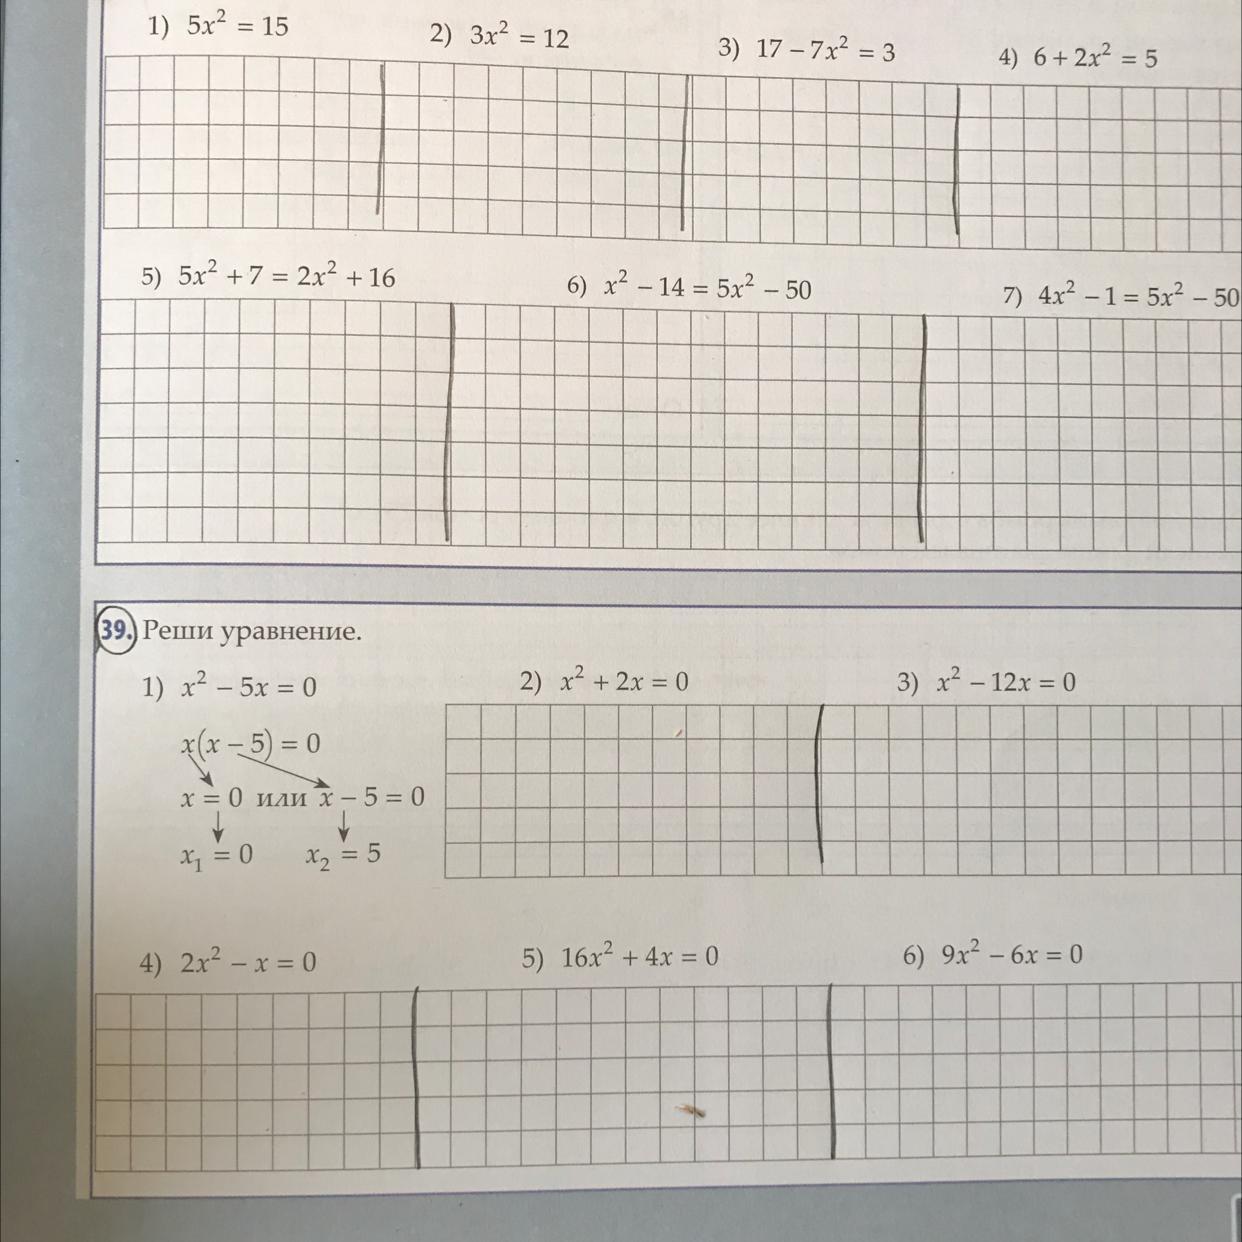 1) 5x² = 15
2) 3x² = 12
3) 17 – 7x² = 3
4) 6 + 2x² = 5
5) 5x² + 7 = 2x² + 16
6) x² – 14 = 5x² – 50
7) 4x² – 1 = 5x² – 50
39. Реши уравнение.
1) x² – 5x = 0
x(x – 5) = 0
x = 0 или x – 5 = 0
x₁ = 0 x₂ = 5
2) x² + 2x = 0
3) x² – 12x = 0
4) 2x² – x = 0
5) 16x² + 4x = 0
6) 9x² – 6x = 0